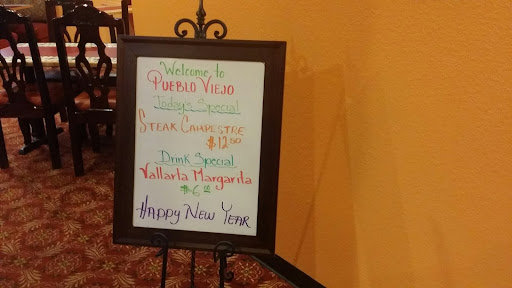 Welcome to
PUEBLO VIEJO
Today's Special
STEAK CAMPESTRE
$12.50
Drink Special
Vallarta Margarita
$6.00
HAPPY NEW YEAR